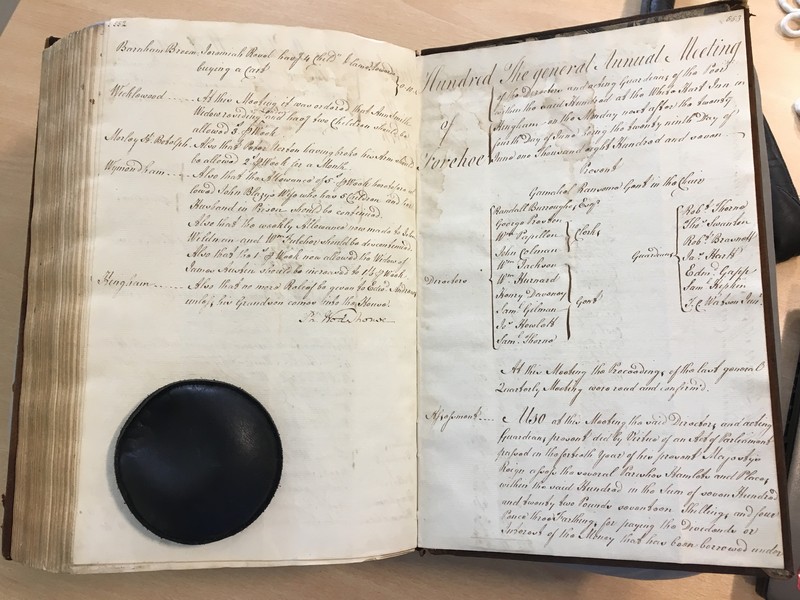 552
Barnham Broom, Jeremiah Raval has 4 Child.n towards
buying a Cart
Wicklewood At this Meeting it was ordered that Ann Smith
Widow residing and has two Children should be
allowed 3 p Week
Morley St. Botolph Also that Peter having broke his Arm should
be allowed 2 p Week for a Month.
Wymondham Also that the Allowance of 5 p Week heretofore al
lowed John Wife who has 5 Children and her
Husband in Prison should be continued.
Also that the weekly Allowance now made to John
Weldman and Wm. Fulcher should be discontinued.
Also that the p Week now allowed the Widow of
James Austen should be increased to p Week
Hingham Also that no more Relief be given to Edwd. Andrews
unless his Grandson comes into the House.
Wodehouse
553
Hundred
of
Forehoe
The general Annual Meeting
of the Directors and acting Guardians of the Poor
within the said Hundred at the White Hart Inn in
Hingham on the Monday next after the twenty
fourth Day of June being the twenty ninth Day of
June one Thousand eight Hundred and seven
Present
Gamaliel Ransome Gent in the Chair
Directors
Randall Burroughes Esqr.
George Preston
Wm. Papillon
John Colman
Clerks
Wm. Jackson
Wm. Hurnard
Henry Daveney
Saml. Gilman
Js. Howlett
Saml. Thorne
Gents
Guardians
Robt. Thorne
Thos. Swanton
Robt.
Jas. Stark
Edmd. Gapp
Saml. Kerkin
J. C. Watson Junr.
At this Meeting the Proceedings of the last general
Quarterly Meeting were read and confirmed.
Assessment Also at this Meeting the said Directors and acting
Guardians present did by Virtue of an Act of Parliament
passed in the fortieth Year of his present Majestys
Reign assess the several Parishes Hamlets and Places
within the said Hundred in the Sum of seven Hundred
and twenty two Pounds seventeen Shillings and four
Pence three Farthings for paying the Dividends or
Interest of the Money that has been borrowed under